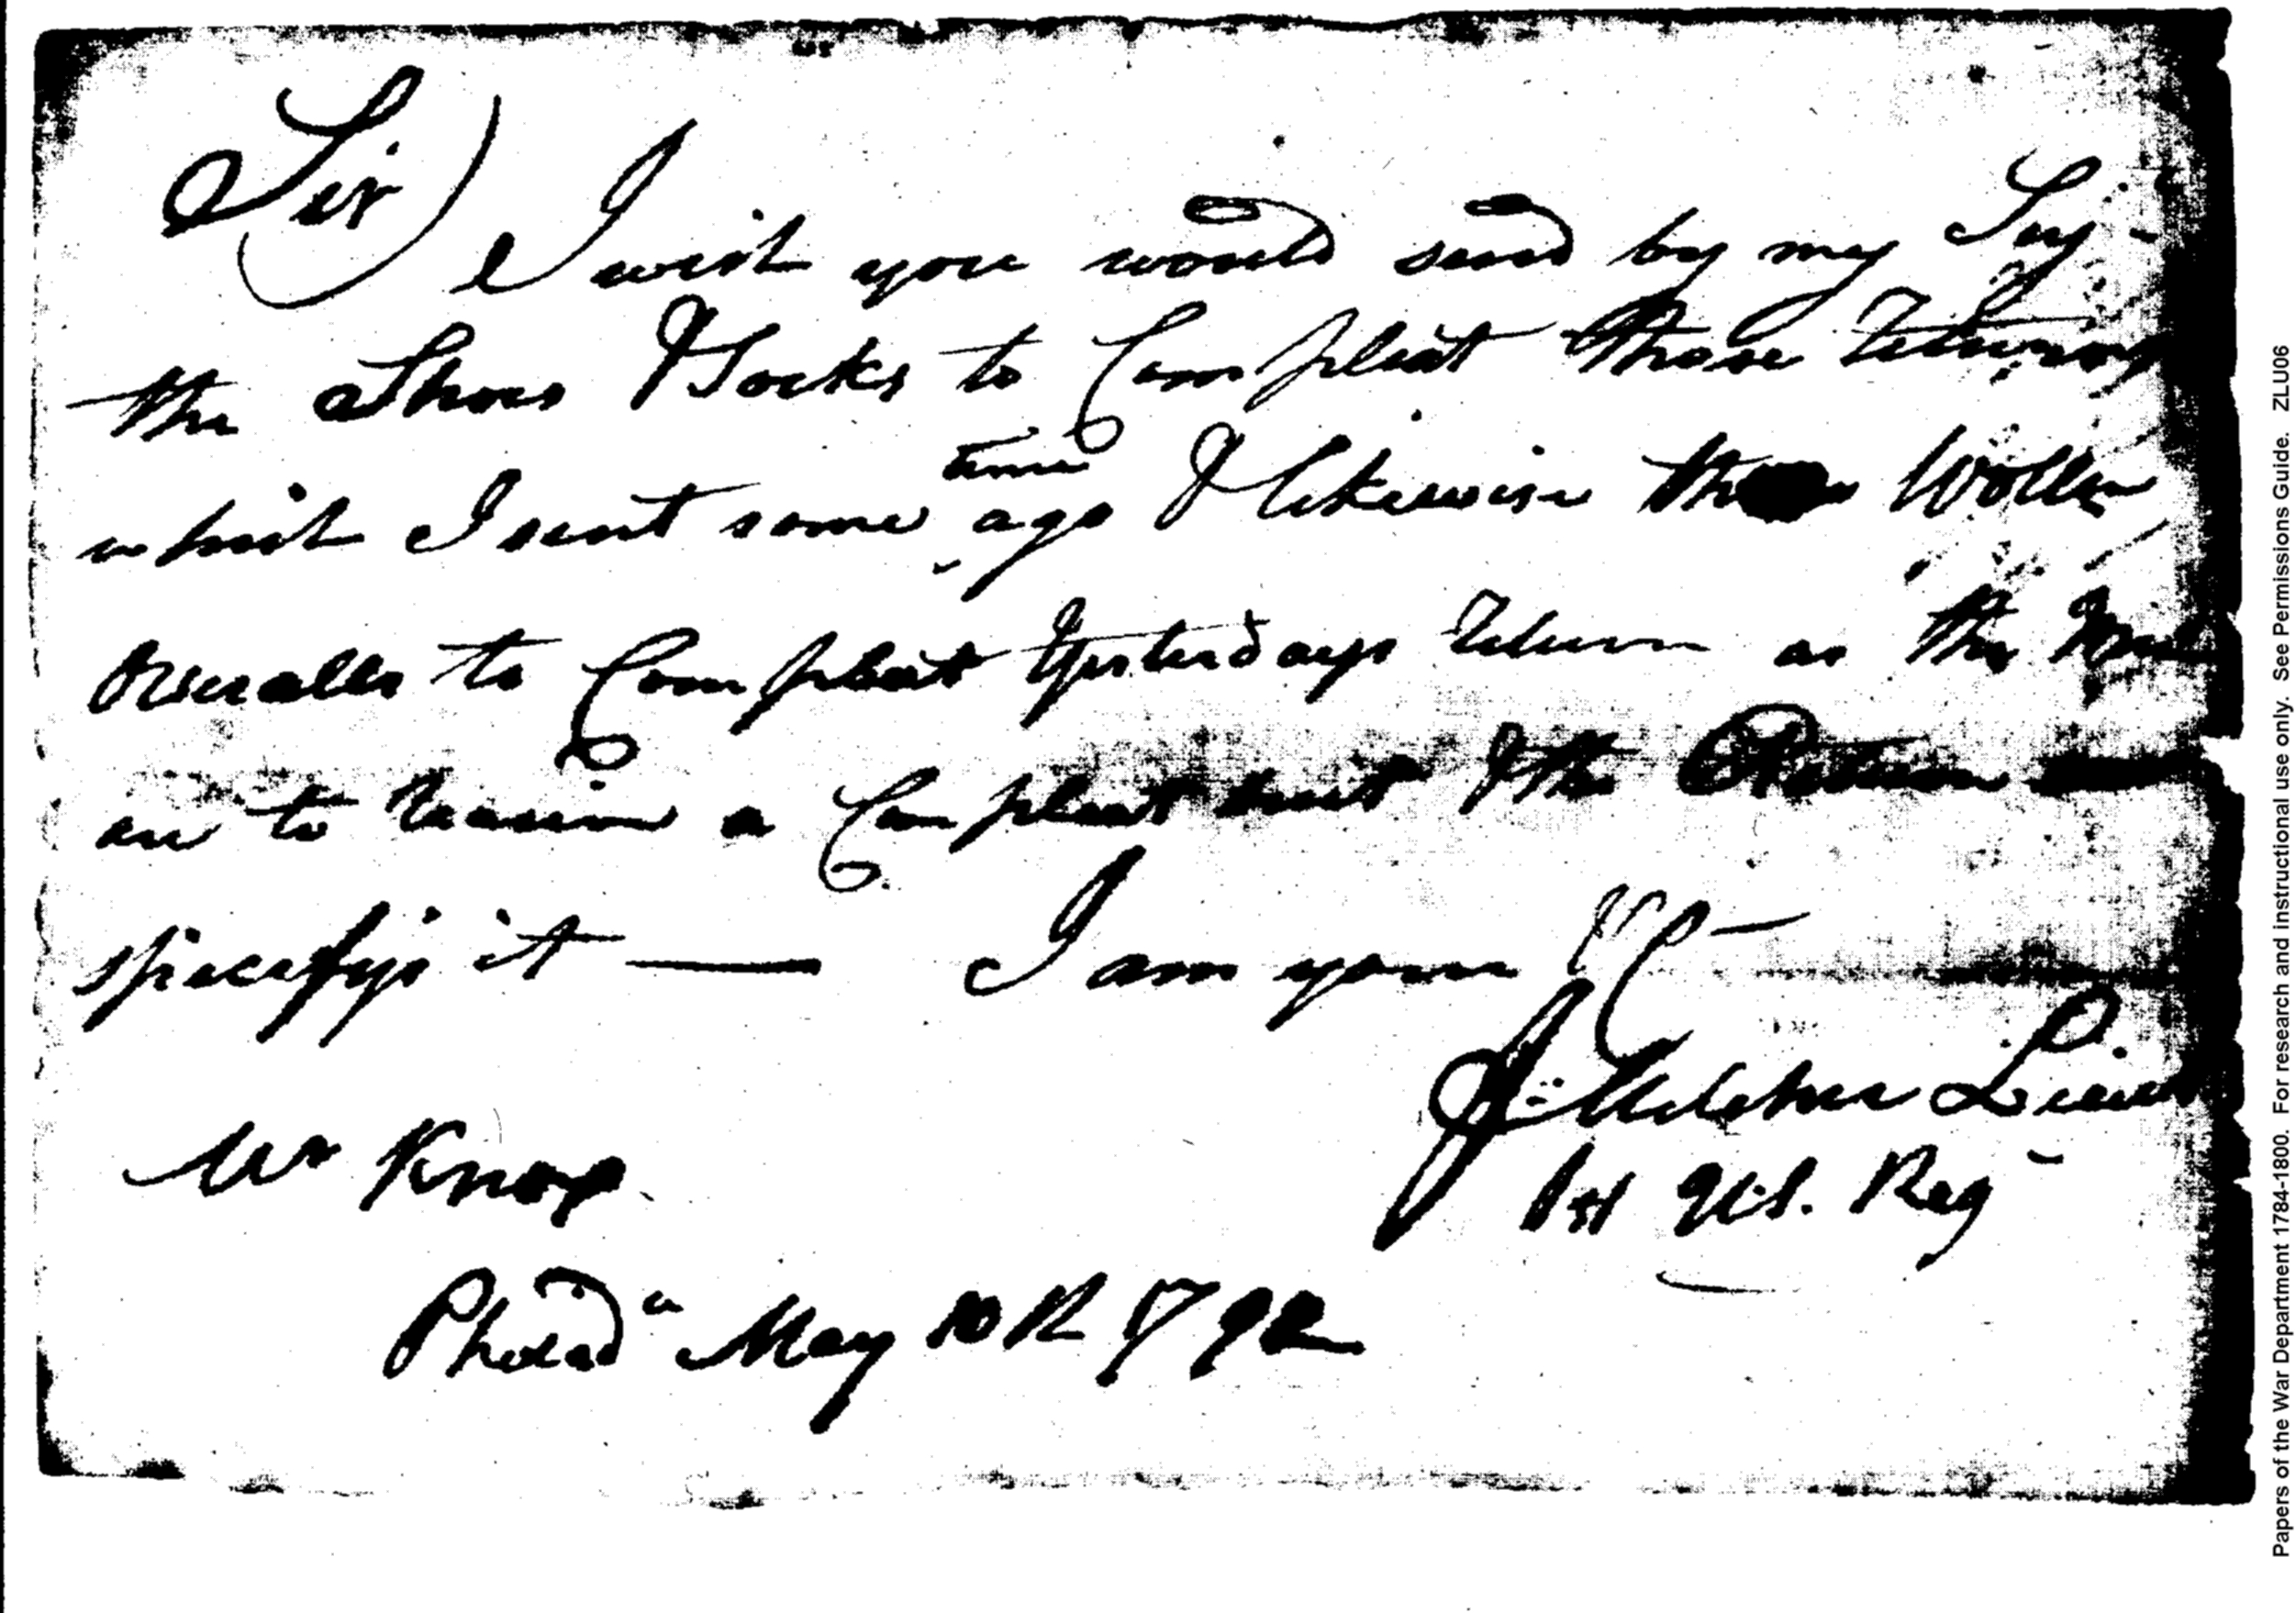 Sir) I wish you would send by my Serj
the Shoes & Socks to Compleat those Returns
which I sent some time ago & likewise the Wollen
Overalls to Compleat Yesterdays Return as the Men
are to receive a Compleat suit & the Return
specifys it — I am your &C
J: Melcher Lieut
1st U.S. Reg
Mr Knox
Philada May 10th 1792
Papers of the War Department 1784-1800. For research and instructional use only. See Permissions Guide. ZLU06